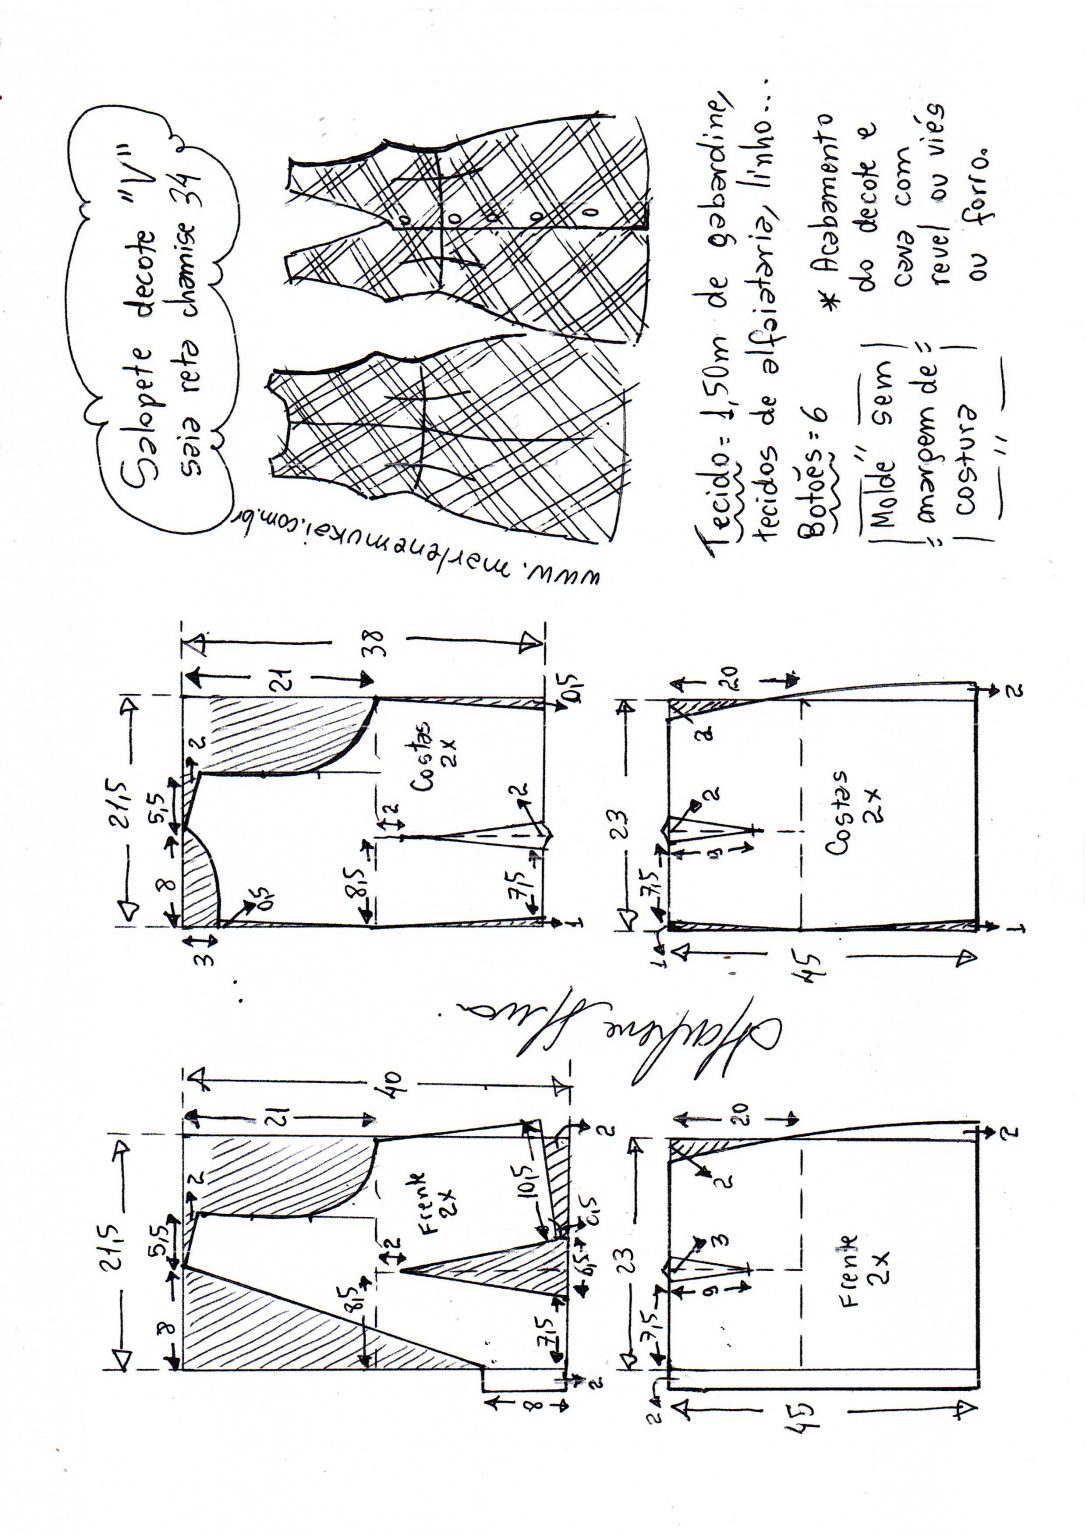 Salopete decote "V"
saia reta chamise 34
www.marlenemukai.com.br
Tecido = 1,50m de gabardine,
tecidos de alfaiataria, linho...
Botões = 6
Molde sem
margem de
costura
* Acabamento
do decote e
cava com
revel ou viés
ou forro.
21,5
8
5,5
2
21
40
8,5
2
Frente
2x
10,5
7,5
6,5
0,5
2
8
2
21,5
8
5,5
2
3
0,5
21
38
8,5
2
Costas
2x
7,5
2
1
0,5
23
7,5
2
3
9
2
20
45
Frente
2x
2
23
7,5
1
2
9
2
20
45
Costas
2x
1
2
Marlene Mukai